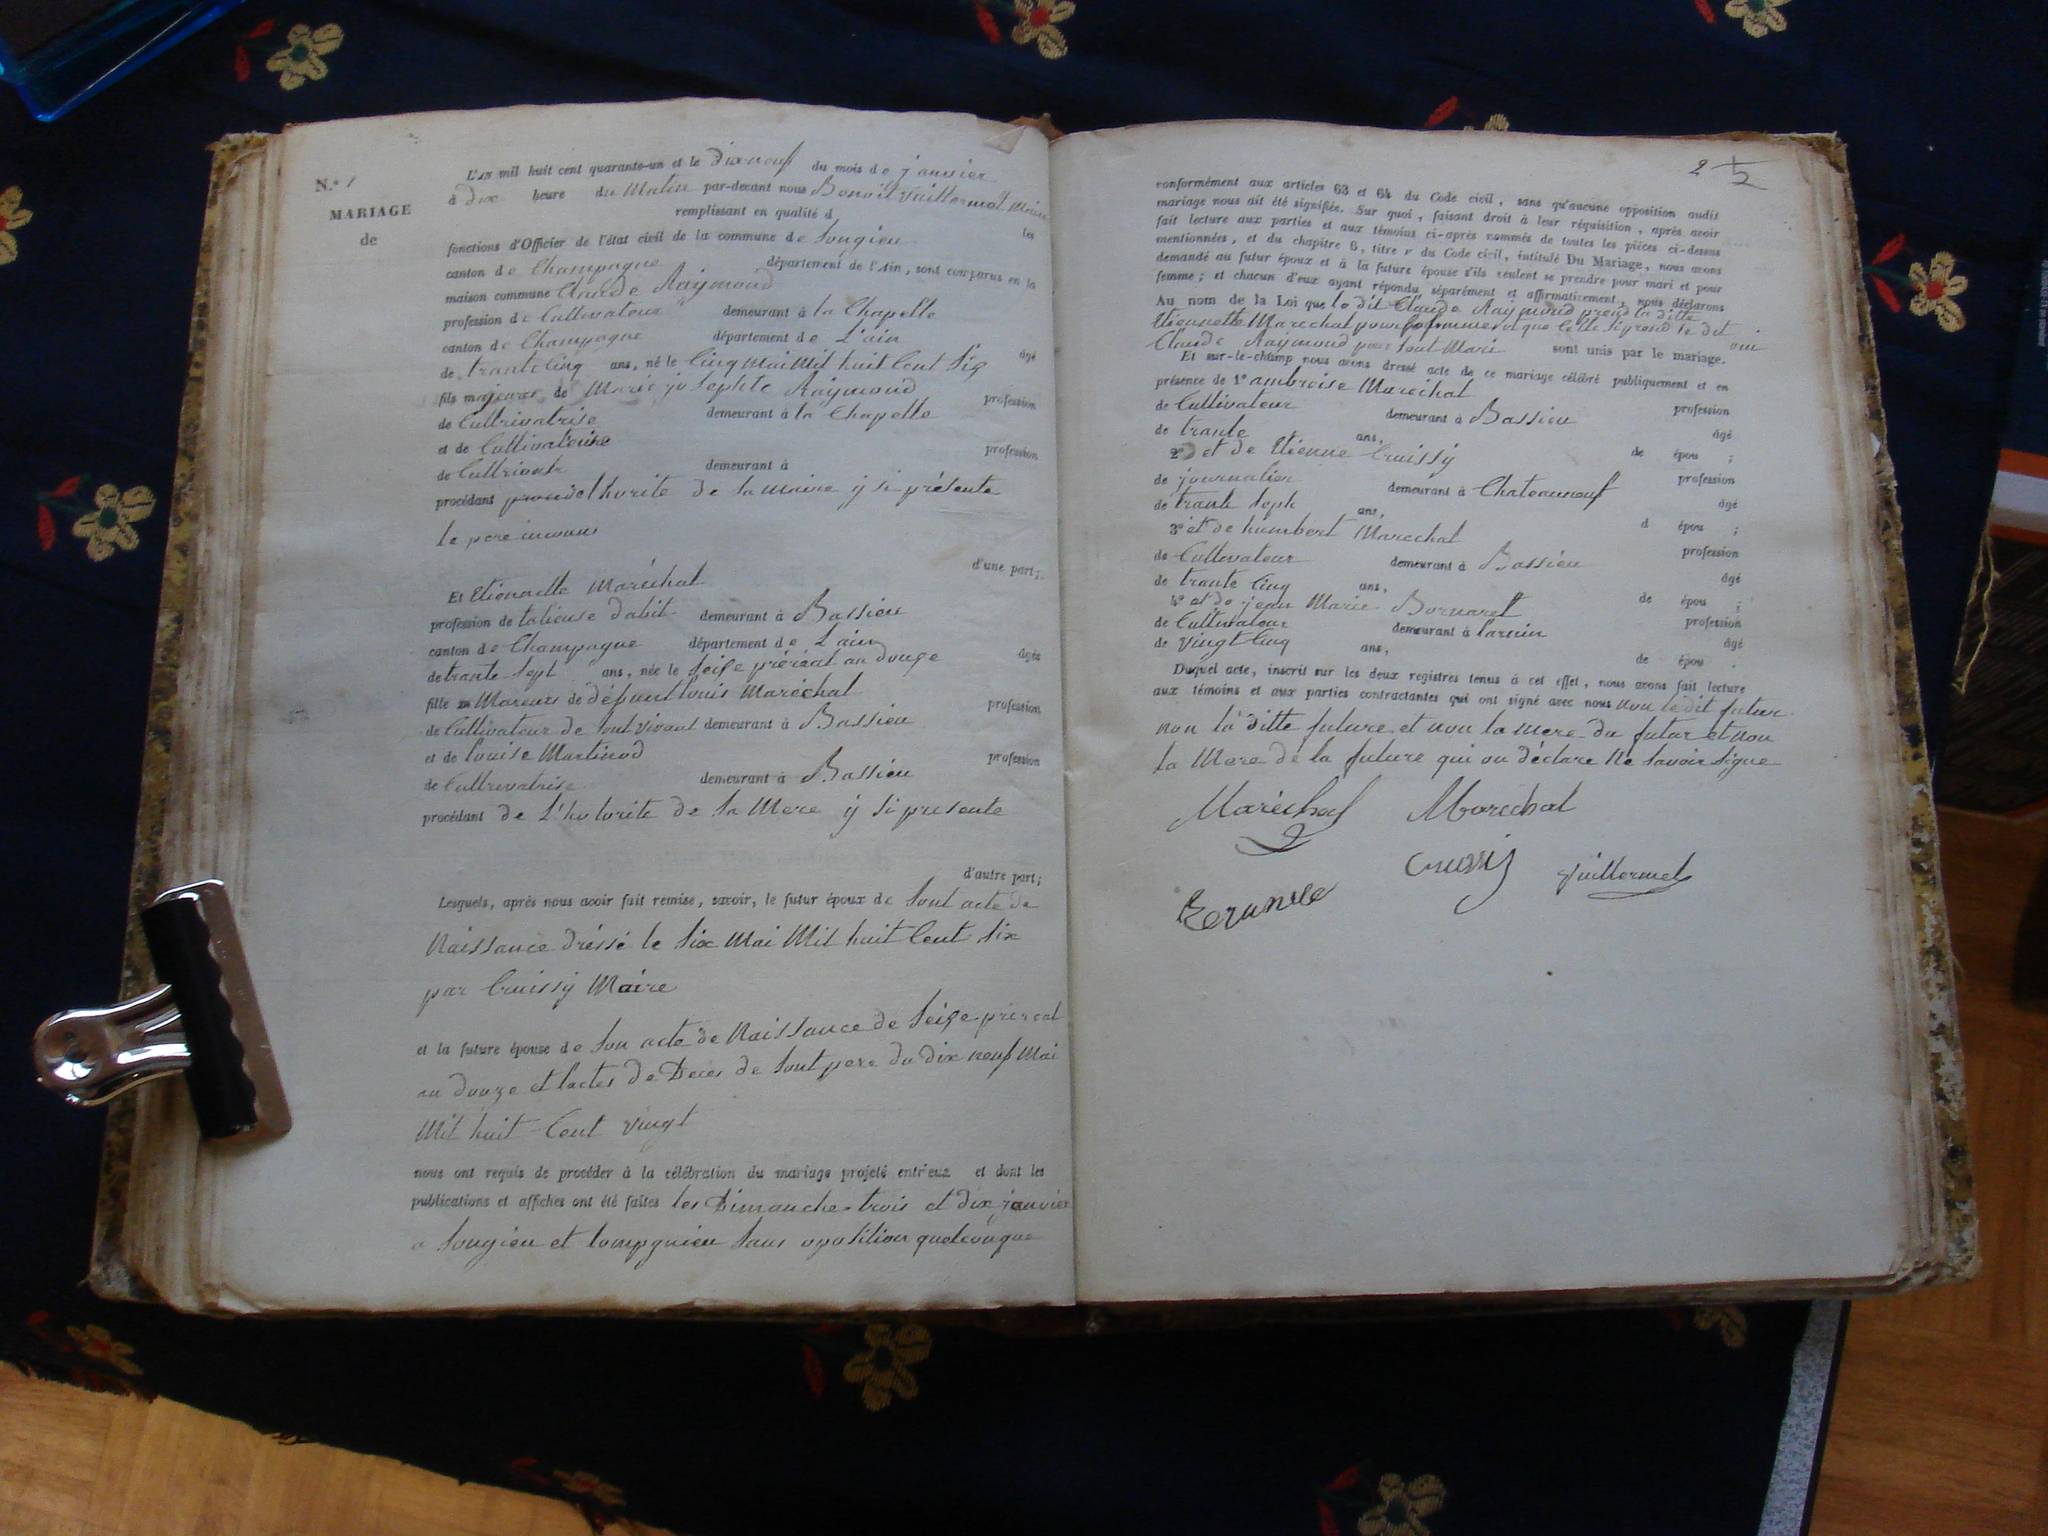 N.º 1
MARIAGE
de
L'AN mil huit cent quarante-un et le dix neuf du mois de janvier
à dix heure du Matin par-devant nous Benoit Vuillermet Maire
remplissant en qualité d les
fonctions d'Officier de l'état civil de la commune de Songieu
canton de Champagne département de l'Ain, sont comparus en la
maison commune Claude Raymond
profession de Cultivateur demeurant à la Chapelle
canton de Champagne département de L'ain
âgé
de trante Cinq ans, né le Cinq Mai Mil huit Cent Six
fils majeur de Marie josephte Raymond
profession
de Cultivatrise demeurant à la Chapelle
et de
profession
de demeurant à
procédant de la y si présente
le pere inconus
d'une part;
Et Etiennette Maréchal
profession de talieuse dabit demeurant à Bassieu
canton de Champagne département de L'ain
âgée
de trante Sept ans, née le Seize prérial an douze
fille Mageure de défunt Louis Maréchal
profession
de Cultivateur de Sont vivant demeurant à Bassieu
et de Louise Martinod
profession
de Cultivatrise demeurant à Bassieu
procédant de L'hotorite de Sa Mere y Si presente
d'autre part;
Lesquels, après nous avoir fait remise, savoir, le futur époux de Sont acte de
Naissance dréssé le Six Mai Mil huit Cent Six
par Cruissy Maire
et la future épouse de Son acte de Naissance de Seize prérial
an douze et lactes de Deces de Sont pere du dix neuf Mai
Mil huit Cent vingt
nous ont requis de procéder à la célébration du mariage projeté entr'eux et dont les
publications et affiches ont été faites les Dimanche trois et dix janvier
a Songieu et Lompgnieu Sans oposition quelconque
2
conformément aux articles 63 et 64 du Code civil, sans qu'aucune opposition audit
mariage nous ait été signifiée. Sur quoi, faisant droit à leur réquisition, après avoir
fait lecture aux parties et aux témoins ci-après nommés de toutes les pièces ci-dessus
mentionnées, et du chapitre 6, titre v du Code civil, intitulé Du Mariage, nous avons
demandé au futur époux et à la future épouse s'ils veulent se prendre pour mari et pour
femme; et chacun d'eux ayant répondu séparément et affirmativement, nous déclarons
Au nom de la Loi que le dit Claude Raymond prend la ditte
Etiennette Marechal pour femme et que Celle Si prend le dit
Claude Raymond pour Sont Mari oui sont unis par le mariage.
Et sur-le-champ nous avons dressé acte de ce mariage célébré publiquement et en
présence de 1º ambroise Marechal
profession
de Cultivateur demeurant à Bassieu
âgé
de trante ans,
de épou ;
2º et de Etienne Cruissy
profession
de journalier demeurant à Chateauneuf
âgé
de trante Seph ans,
d épou ;
3º et de humbert Marechal
profession
de Cultivateur demeurant à Bassieu
âgé
de trante Cinq ans,
de épou ;
4º et de jean Marie Bornaret
profession
de Cultivateur demeurant à Larcin
âgé
de Vingt Cinq ans,
de épou .
Duquel acte, inscrit sur les deux registres tenus à cet effet, nous avons fait lecture
aux témoins et aux parties contractantes qui ont signé avec nous non le dit futur
non la ditte future et non la mere du futur et non
la Mere de la future qui on déclare Ne Savoir Signe
Maréchal Marechal
Cruissy Vuillermet